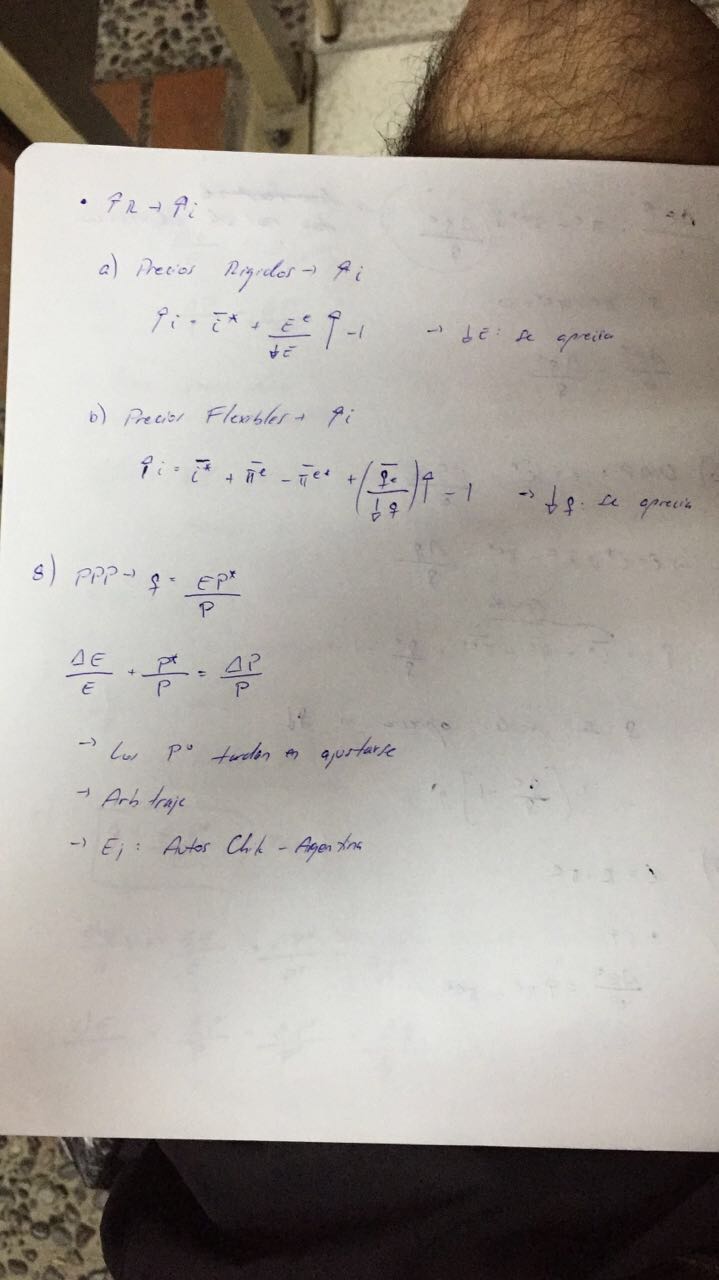 • ↑R → ↑i
a) Precios Rigidos → ↑i
↑i = i̅* + (Eᵉ/↓E)↑ - 1 → ↓E: se aprecia
b) Precios Flexibles → ↑i
↑i = i̅* + π̅ᵉ - π̅ᵉ* + (q̅ᵉ/↓q)↑ - 1 → ↓q: se aprecia
8) PPP → q = EP*/P
ΔE/E + P*/P = ΔP/P
→ Los Pº tardan en ajustarse
→ Arbitraje
→ Ej: Autos Chile - Argentina